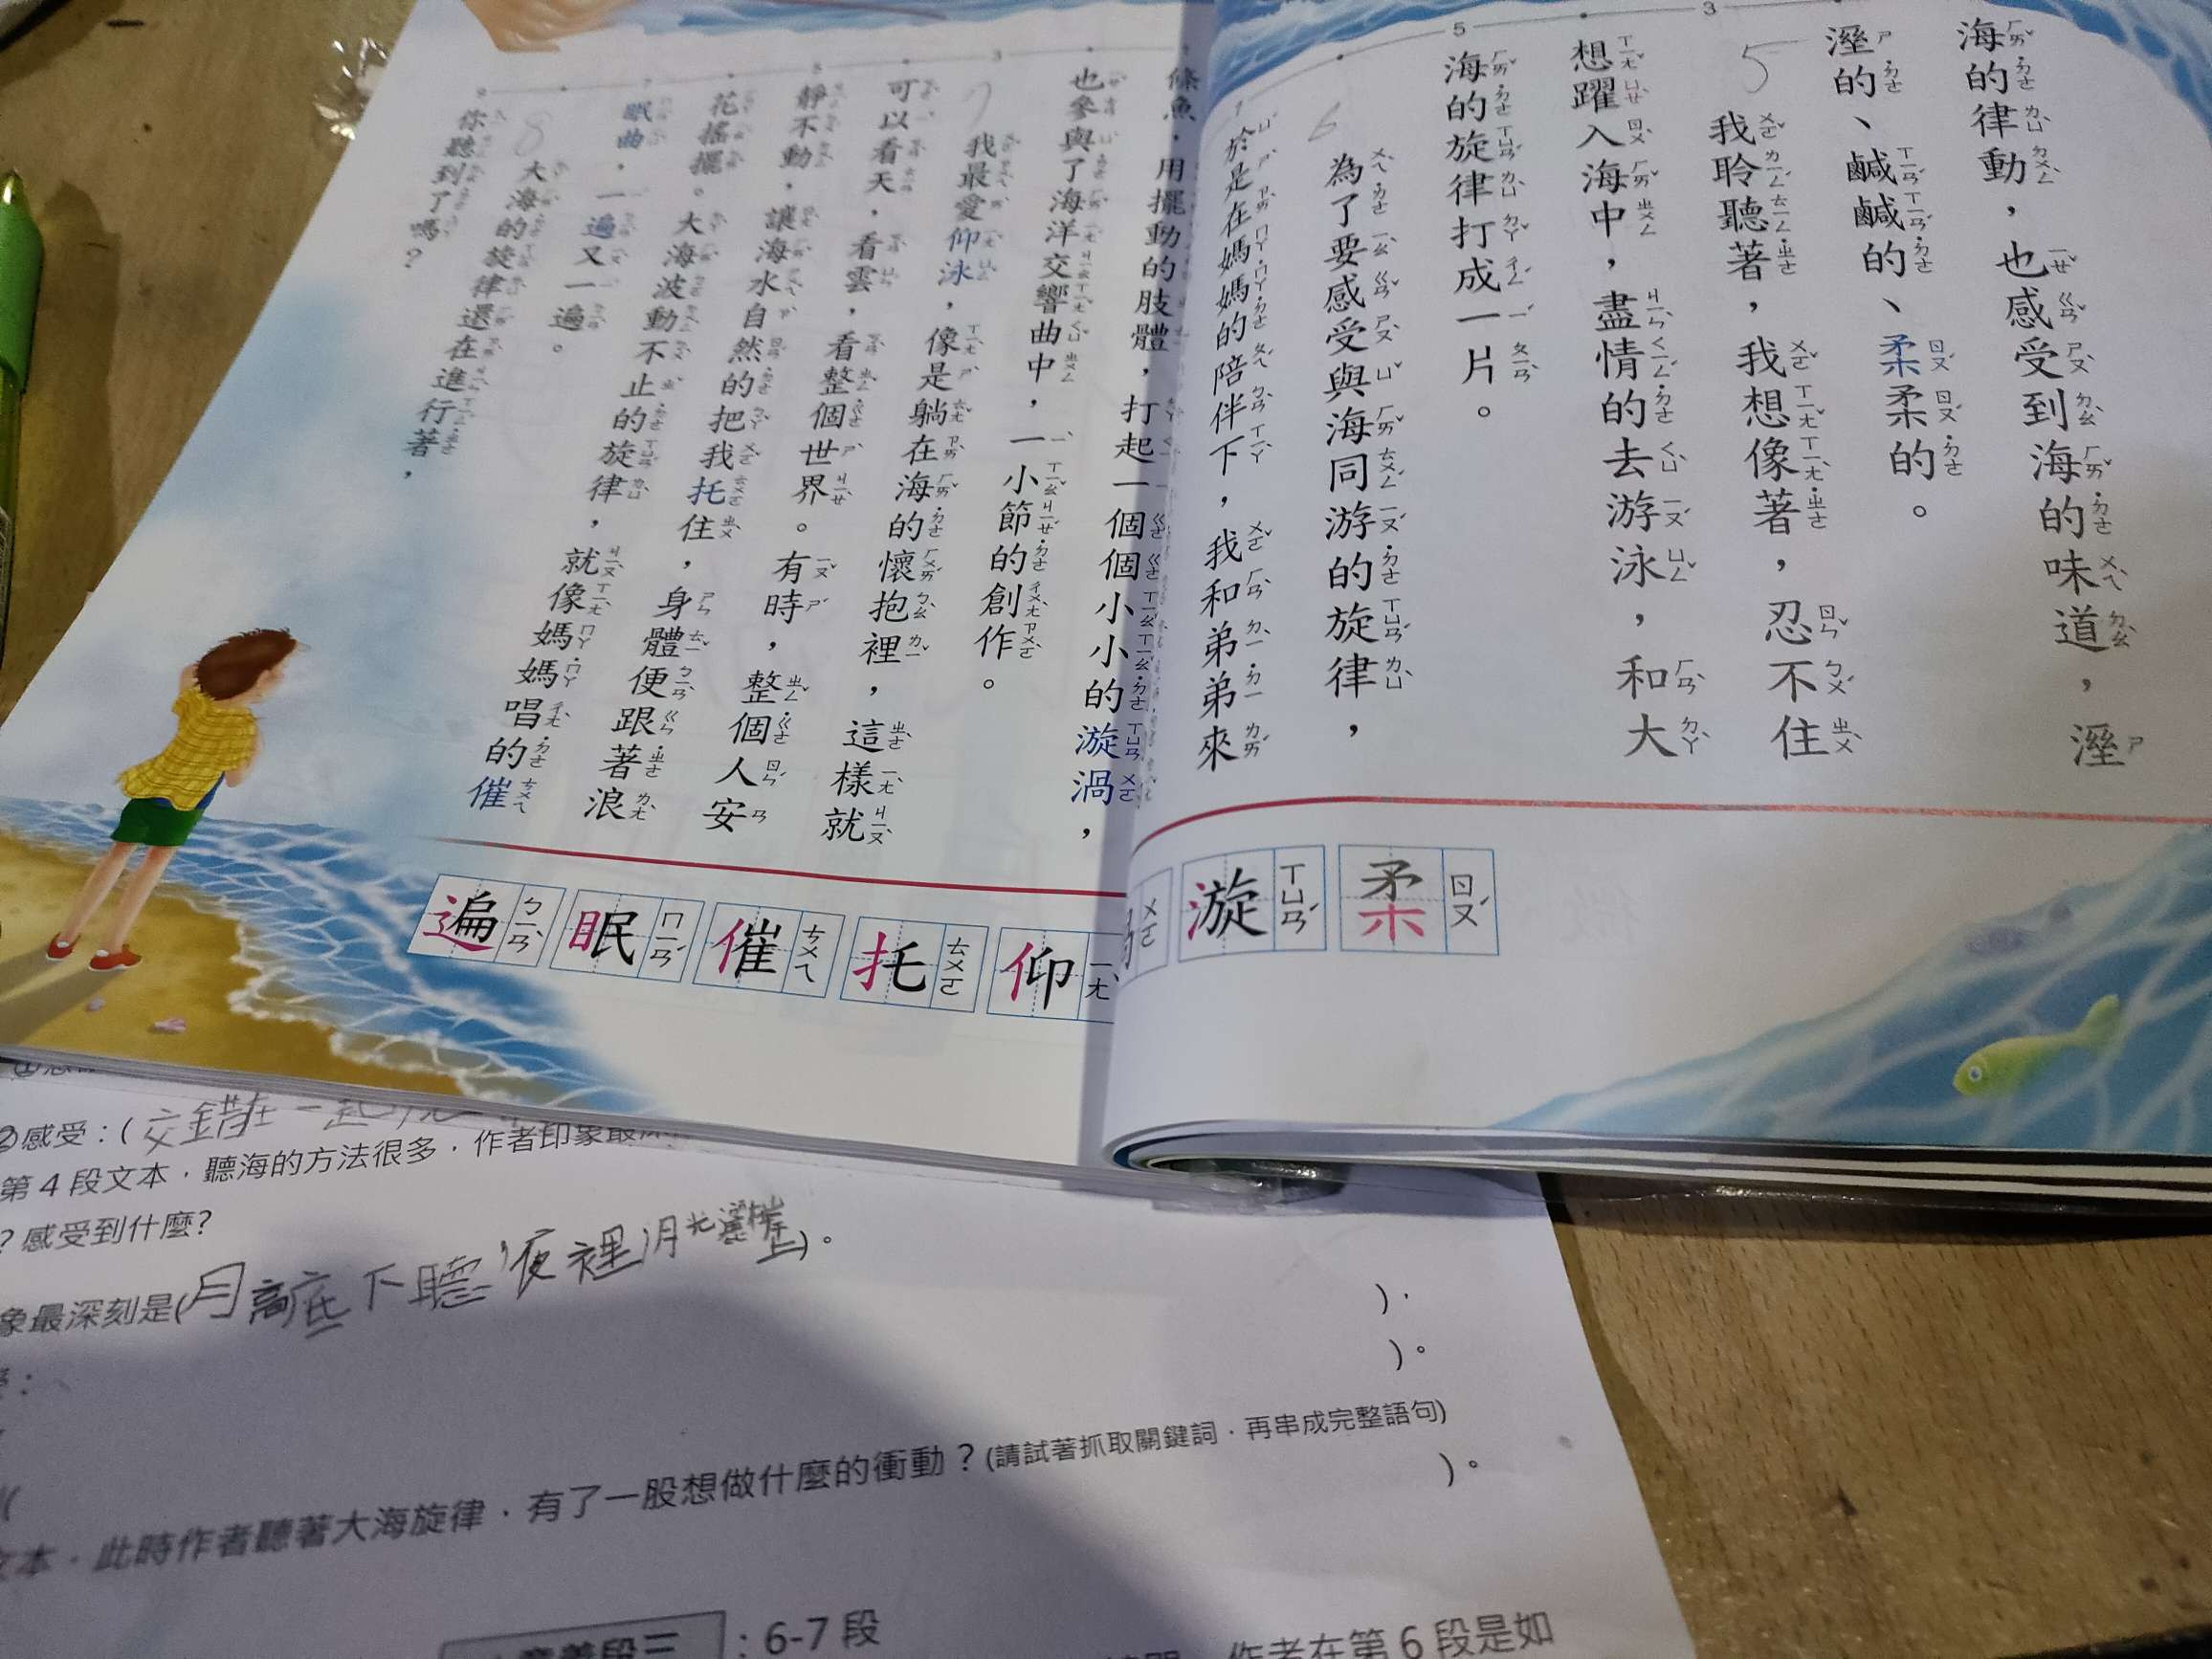 海的律動，也感受到海的味道，溼
溼的、鹹鹹的、柔柔的。
5
我聆聽著，我想像著，忍不住
想躍入海中，盡情的去游泳，和大
海的旋律打成一片。
6
為了要感受與海同游的旋律，
於是在媽媽的陪伴下，我和弟弟來
柔 ㄖㄡˊ
漩 ㄒㄩㄢˊ
條魚，用擺動的肢體，打起一個個小小的漩渦，
也參與了海洋交響曲中，一小節的創作。
7
我最愛仰泳，像是躺在海的懷抱裡，這樣就
可以看天，看雲，看整個世界。有時，整個人安
靜不動，讓海水自然的把我托住，身體便跟著浪
花搖擺。大海波動不止的旋律，就像媽媽唱的催
眠曲，一遍又一遍。
8
大海的旋律還在進行著，
你聽到了嗎？
仰 ㄧㄤˇ
托 ㄊㄨㄛ
催 ㄘㄨㄟ
眠 ㄇㄧㄢˊ
遍 ㄅㄧㄢˋ
②感受：(交錯在一起
第4段文本，聽海的方法很多，作者印象最深
？感受到什麼？
象最深刻是(月高底下聽，夜裡月光灑 )。
)。
)。
文本，此時作者聽著大海旋律，有了一股想做什麼的衝動？(請試著抓取關鍵詞，再串成完整語句)
)。
意義段三：6-7段
作者在第6段是如